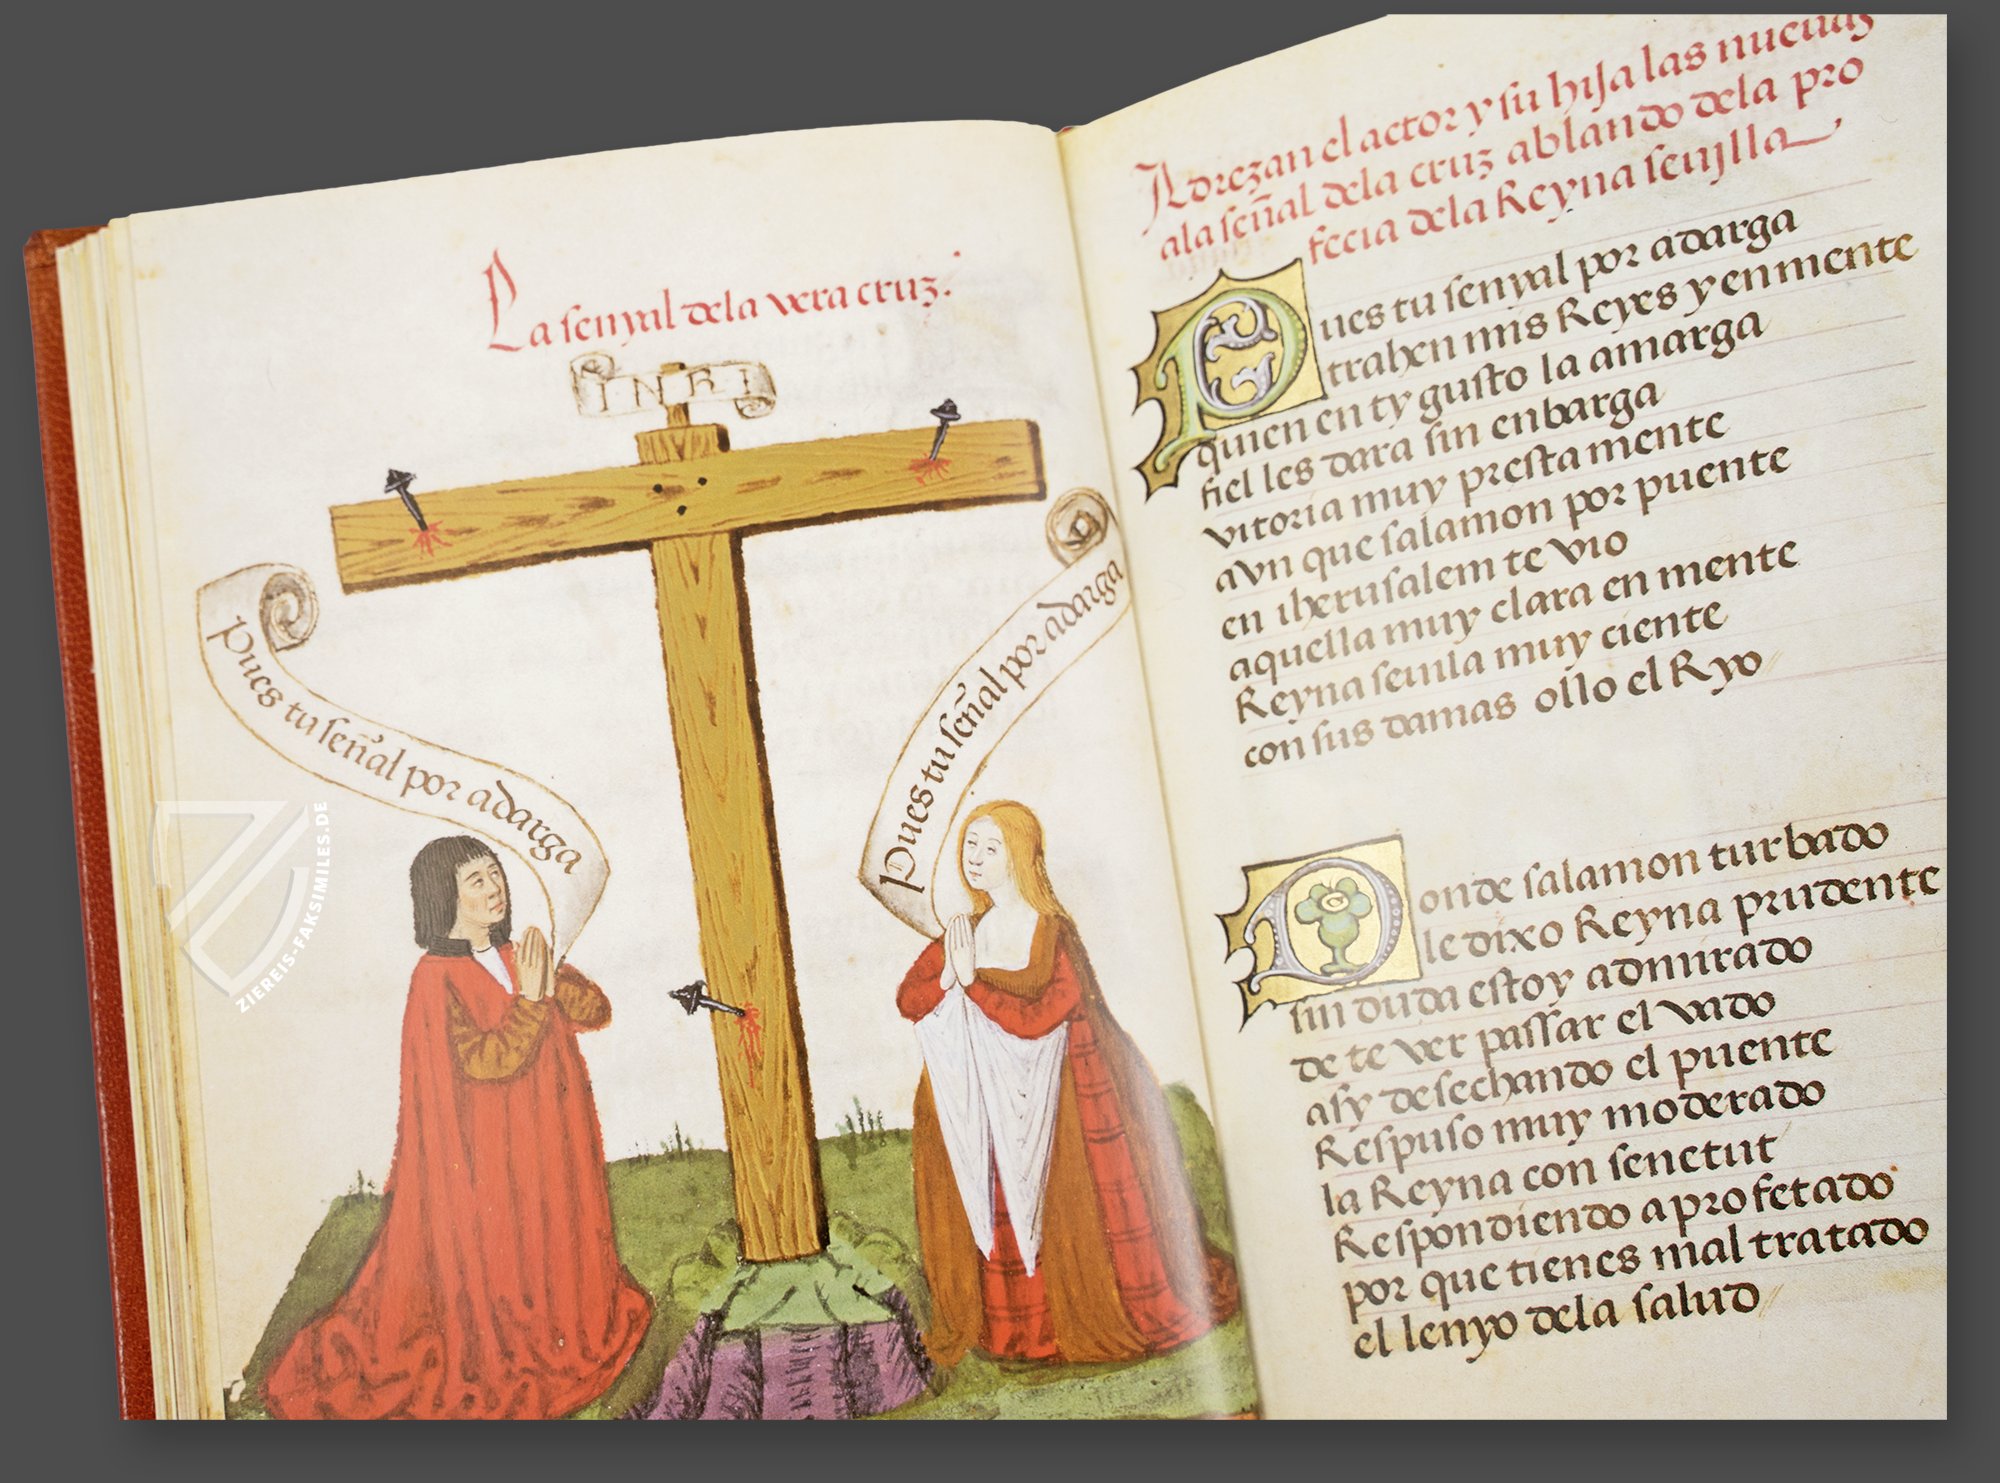 La senyal dela vera cruz.
INRI
Pues tu señal por adarga
Pues tu señal por adarga
ZIEREIS-FAKSIMILES.DE
Adrezan el actor y su hija las nueuas
ala señal dela cruz ablando dela pro
fecia dela Reyna seujlla
Pues tu senyal por adarga
trahen mis Reyes y en mente
quien en ty gusto la amarga
fiel les dara sin enbarga
vitoria muy presta mente
avn que salamon por puente
en iherusalem te vio
aquella muy clara en mente
Reyna seuila muy ciente
con sus damas ollo el Ryo
Donde salamon turbado
le dixo Reyna prudente
sin duda estoy admirado
de te ver passar el vado
asy desechando el puente
Respuso muy moderado
la Reyna con senetut
Respondiendo a profetado
por que tienes mal tratado
el lenyo dela salud